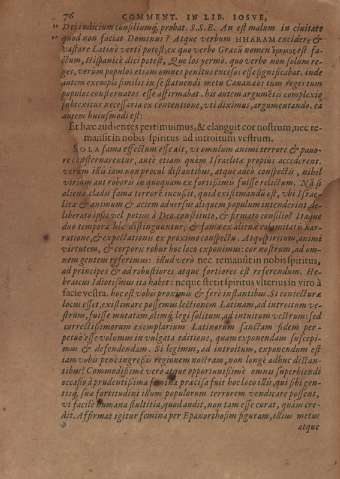 76 COMMENT. IN LIB. IOSVE,
dependicium consiliumq́; probat. S.S.E. An est malum in ciuitate
quod non faciat Dominus? Atque verbum HHARAM excidere, &
vastare Latinè verti potest, ex quo verbo Græci nomen fa-
ctum, Hispanicè dici potest, Que los yermo. quo verbo non solum re-
ges, verum populos etiam omnes penitus excisos esse significabat. inde
autem exempla similis ex se statuendi metu Cananæos tum regerum
populos consternatos esse affirmabat. hoc autem argumẽti complexio
subiecitur necessaria ex contentione, vti diximus, argumentando. ea
autem huiusmodi est:
Et hæc audientes pertimuimus, & elanguit cor nostrum, nec re-
mansit in nobis spiritus ad introitum vestrum.
SOLA fama effectum esse ait, vt omnium animi terrore & pauo-
re consternarentur, ante etiam quàm Israelitæ propius accederent.
verùm illis iam non procul distantibus, atque adeò conspectis, nihil
virium aut roboris in quoquam ex fortissimis fuisse relictum. Nā si
aliena cladis fama terrore incussit, quid existimandū est, vbi Israe-
litæ & animum & aciem aduersus aliquem populum intenderint de-
liberato ipsa vel potius à Deo constituto, & firmato consilio? Itaque
duo tempora hîc distinguuntur, & famæ ex alienæ calamitatis nar-
ratione, & expectationis ex proximo conspectu. Atque terrorem, animi
virtutem, & corporis robur hoc loco exponimus: cor nostrum, ad om-
nem gentem referimus: illud verò nec remansit in nobis spiritus,
ad principes & ad robustiores atque fortiores est referendum. He-
braicus Idiotismus ita habet: neque stetit spiritus vlterius in viro à
facie vestra. hoc est vobis proximis & ferè instantibus. Si coniecturæ
locus esset, existimare possemus lectionem Latinam, ad introitum ve-
strum, fuisse mutatam, olimq́; legi solitum, ad intuitum vestrum: sed
correctissimorum exemplarium Latinorum sanctam fidem per-
petuò esse volumus in vulgata editione, quam exponendam suscepi-
mus & defendendam. Si legimus, ad introitum, exponendum est
tam vobis procul ingressis regionem nostram, non longè adhuc destan-
tibus: Commodissimè verò atque opportunissimè omnis superbiendi
occasio à prudentissima fœmina præcisa fuit hoc loco illis, qui sibi gen-
tiq́; suæ fortitudini illum populorum terrorem vendicare possent,
vt facile humana stultitia, quod audit, non tam esse curat, quàm cre-
dit. Affirmat igitur femina per Epanorthosim figuram, illius metus
atque